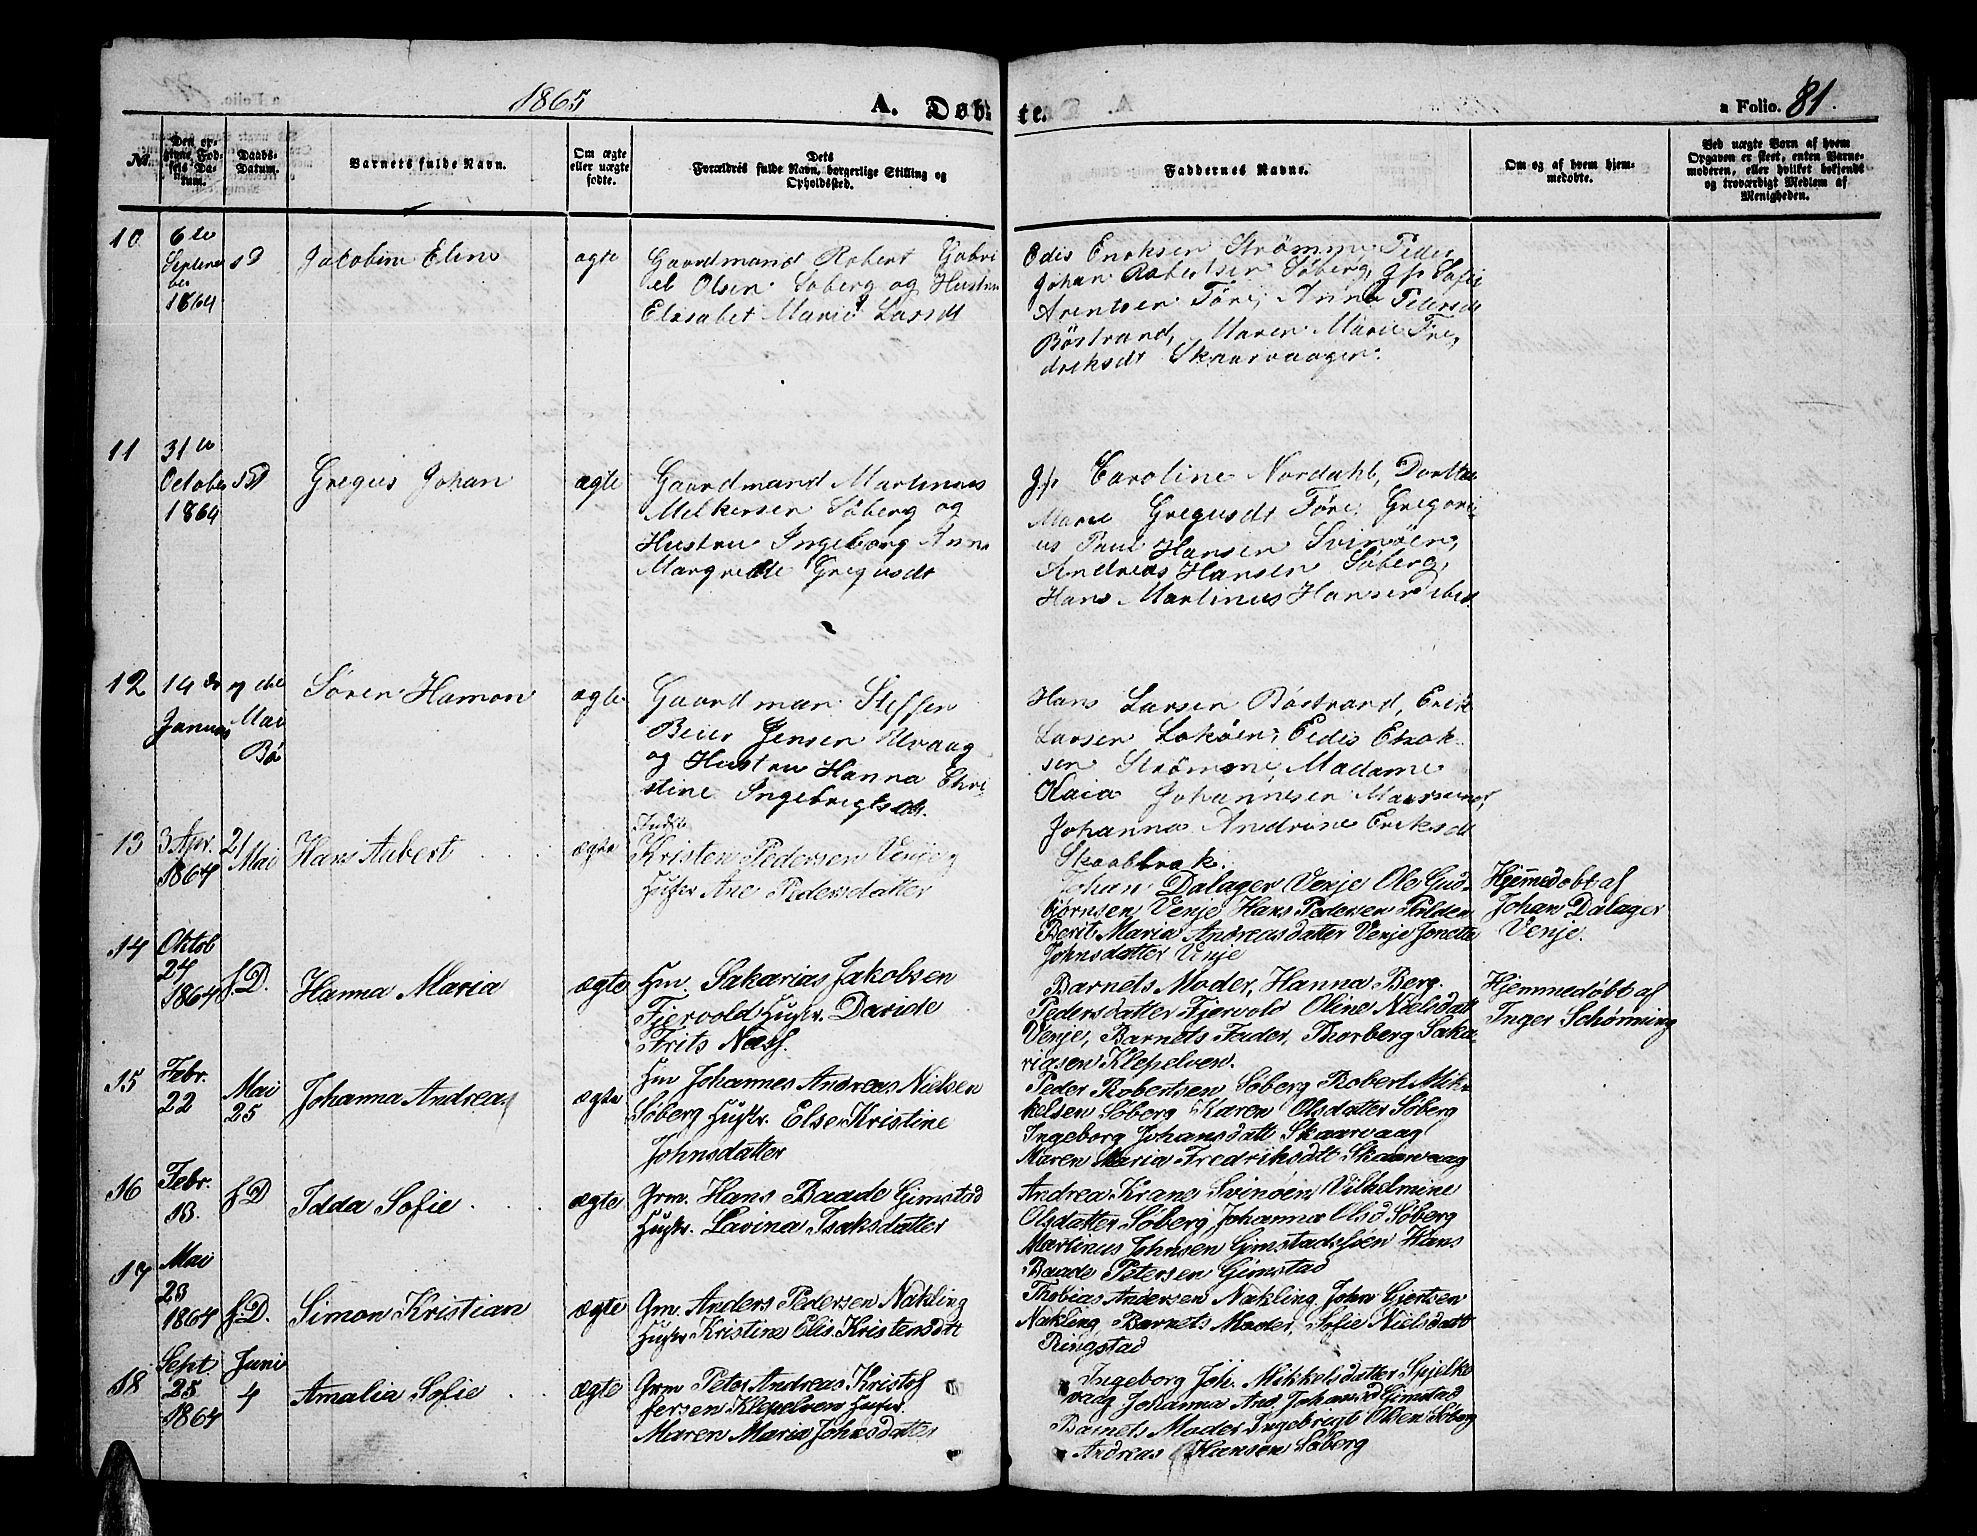 1865
A. Døbte.
a Folio. 81.
№
Den opgivne Fødsels Datum.
Daabs-Datum.
Varnets fulde Navn.
Om ægte eller uægte fødte.
Dets Forældres fulde Navn, borgerlige Stilling og Opholdssted.
Faddernes Navne.
Om og af hvem hjemmedøbte.
Ved uægte Børn af hvem Opgaven er skeet, enten Barnemoderen, eller hvilket bekjendt og troværdigt Medlem af Menigheden.
10
6te
Septem
ber
1864
sD
Jacobine Eline
ægte
Gaardmand Robert Gabri
el Olsen Søberg og Hustru
Elisabet Marie Larsdt
Edis Enoksen Strømme, Peder
Johan Robertsen Søberg, gp Sofie
Arentsen Føre, Anna Pedersdt
Bøstrand, Maren Marie Fre,
driksdt Skaarvaagen.
11
31te
October
1864
sD
Gregus Johan
ægte
Gaardmand Martinus
Melkersen Søberg og
Hustru Ingeborg Anna
Margrethe Gregusdt
gp Caroline Nordahl, Dorthea
Marie Gregusdt Føre, Gregori-
us Paul Hansen Svinøen,
Andreas Hansen Søberg,
Hans Martinus Hansen ibid
12
14de
Januar
Mai
Bø
Søren Hamon
ægte
Gaardman Steffen
Beier Jensen Uvaag
og Hustru Hanna Chri-
stine Ingebrigtsdt.
Hans Larsen Bøstrand, Erik
Larsen Lokøen, Eedis Enok-
sen Strømme, Madame
Kaia Johannesen Maarsund,
Johanna Andrine Eriksdt
Skaabrak.
13
3 Apr.
1864
21
Mai
Hans Aubert
ægte
Inds.
Kristen Pedersen Venje og
Hustr Ane Pedersdatter
Johan Dalager Venje Ole Gud-
bjørnsen Venje Hans Pedersen Polden
Berit Maria Andreasdatter Venje Jonetta
Johnsdatter Venje
Hjemmedøbt af
Johan Dalager
Venje.
14
Oktob
24
1864
f.D.
Hanna Maria
ægte
Hm. Sakarias Jakobsen
Fjervold Hustr. Davide
Frits Næss.
Barnets Moder, Hanna Berg.
Pedersdatter Fjervold Oline Nielsdatt
Venje, Barnets Fader, Thorberg Saka-
riasen Klepelven.
Hjemmedøbt af
Inger Schørning
15
Febr.
22
Mai
25
Johanna Andreas
ægte
Hm Johannes Andreas Nielsen
Søberg Hustr. Else Kristine
Johnsdatter
Peder Robertsen Søberg Robert Mik-
kelsen Søberg Karen Olsdatter Søberg
Ingeborg Johansdatt Skaarvaag
Maren Maria Fredriksdtt Skaarvaag
16
Febr.
13.
f.D
Idda Sofie
ægte
Grm. Hans Baade Gimstad
Hustr. Lavina Isaksdatter
Andrea Krane Svinøen Vilhelmine
Olsdatter Søberg Johanna Olsd Søberg
Martinus Johnsen Gimstadsøen Hans
Baade Petersen Gimstad
17
Mai
23
1864
f.D.
Simon Kristian
ægte
Grm. Anders Pedersen Nakling
Hustr Kristine Elis. Kristensdtt
Thobias Andersen Nakling, John Gjertsen
Nakling, Barnets Moder, Sofie Nielsdatt
Ringstad
18
Sept.
25
1864
Juni
4
Amalia Sofie
ægte
Grm Peter Andreas Kristof
fersen Klepelven Hustr.
Maren Maria Johnsdatter
Ingeborg Joh. Mikkelsdatter Spjelke
vaag Johanna And. Johansd Gimstad
Barnets Moder Ingebrigt Olsen Søberg
Andreas Hansen Søberg